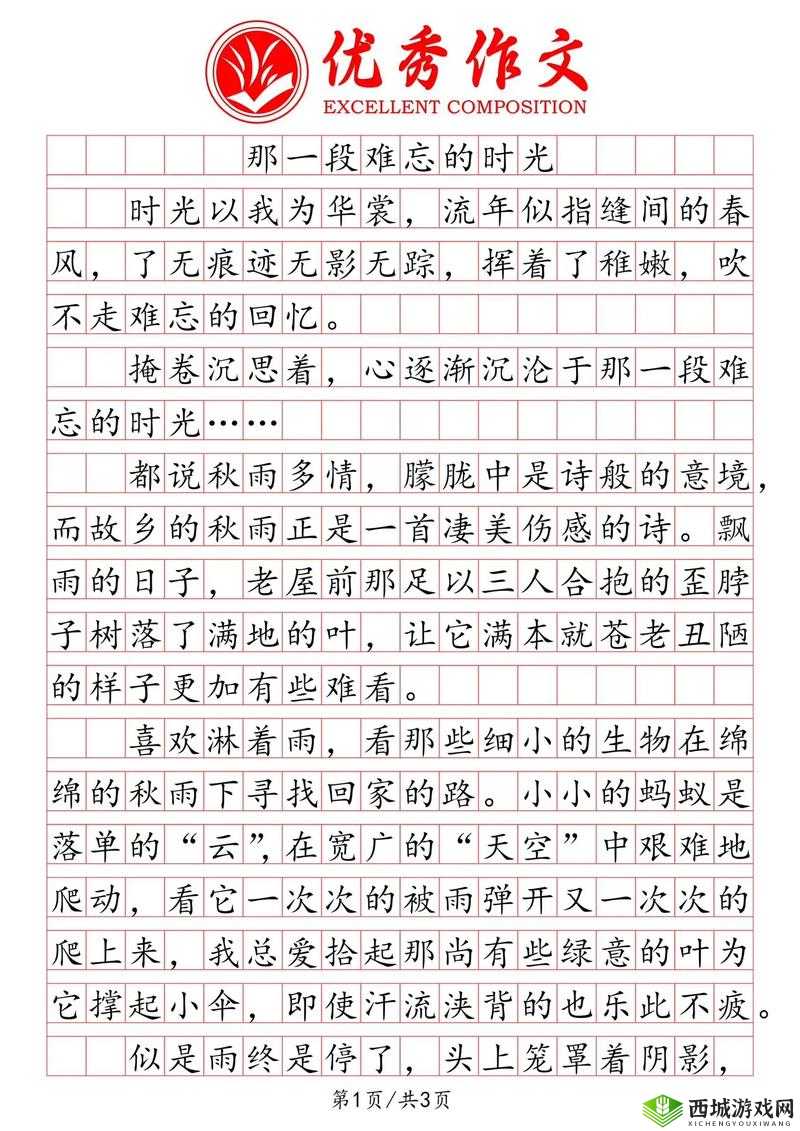 优秀作文
EXCELLENT COMPOSITION
那一段难忘的时光
时光以我为华裳，流年似指缝间的春
风，了无痕迹无影无踪，挥着了稚嫩，吹
不走难忘的回忆。
掩卷沉思着，心逐渐沉沦于那一段难
忘的时光……
都说秋雨多情，朦胧中是诗般的意境，
而故乡的秋雨正是一首凄美伤感的诗。飘
雨的日子，老屋前那足以三人合抱的歪脖
子树落了满地的叶，让它满本就苍老丑陋
的样子更加有些难看。
喜欢淋着雨，看那些细小的生物在绵
绵的秋雨下寻找回家的路。小小的蚂蚁是
落单的“云”，在宽广的“天空”中艰难地
爬动，看它一次次的被雨弹开又一次次的
爬上来，我总爱拾起那尚有些绿意的叶为
它撑起小伞，即使汗流浃背的也乐此不疲。
似是雨终是停了，头上笼罩着阴影，
第1页/共3页
西城游戏网
XICHENGYOUXIWANG